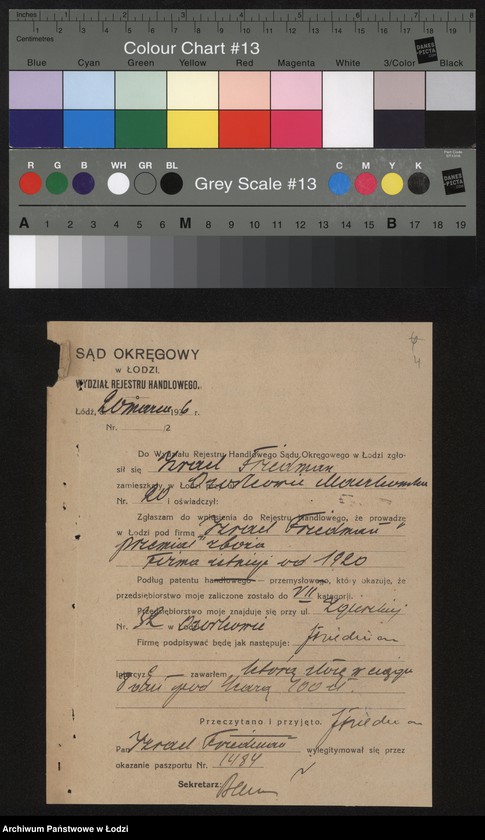 Inches 1 2 3 4 5 6 7 8
Centimetres 1 2 3 4 5 6 7 8 9 10 11 12 13 14 15 16 17 18 19
Colour Chart #13
DANES-PICTA
Blue Cyan Green Yellow Red Magenta White 3/Color Black
R G B WH GR BL Grey Scale #13 C M Y K
DANES-PICTA
A 1 2 3 4 5 6 M 8 9 10 11 12 13 14 15 B 17 18 19
4
SĄD OKRĘGOWY
w ŁODZI.
WYDZIAŁ REJESTRU HANDLOWEGO.
Łódź, d. 20 marca 1936 r.
Nr. /2
Do Wydziału Rejestru Handlowego Sądu Okręgowego w Łodzi zgło-
sił się Izrael Friedman
zamieszkały w Ozorkowie
Nr. 20 i oświadczył:
Zgłaszam do wpisania do Rejestru Handlowego, że prowadzę
w Łodzi pod firmą „Izrael Friedman"
przemiał zboża
Firma istnieje od 1920
Podług patentu handlowego przemysłowego, który okazuje, że
przedsiębiorstwo moje zaliczone zostało do VII kategorji.
Przedsiębiorstwo moje znajduje się przy ul. Zgierskiej
Nr. w Ozorkowie
Firmę podpisywać będę jak następuje: Friedman
Intercyzę zawarłem którą złożę w ciągu
dni pod karą 100 zł.
Przeczytano i przyjęto. Friedman
Pan Izrael Friedman wylegitymował się przez
okazanie paszportu Nr. 1484
Sekretarz:
Archiwum Państwowe w Łodzi